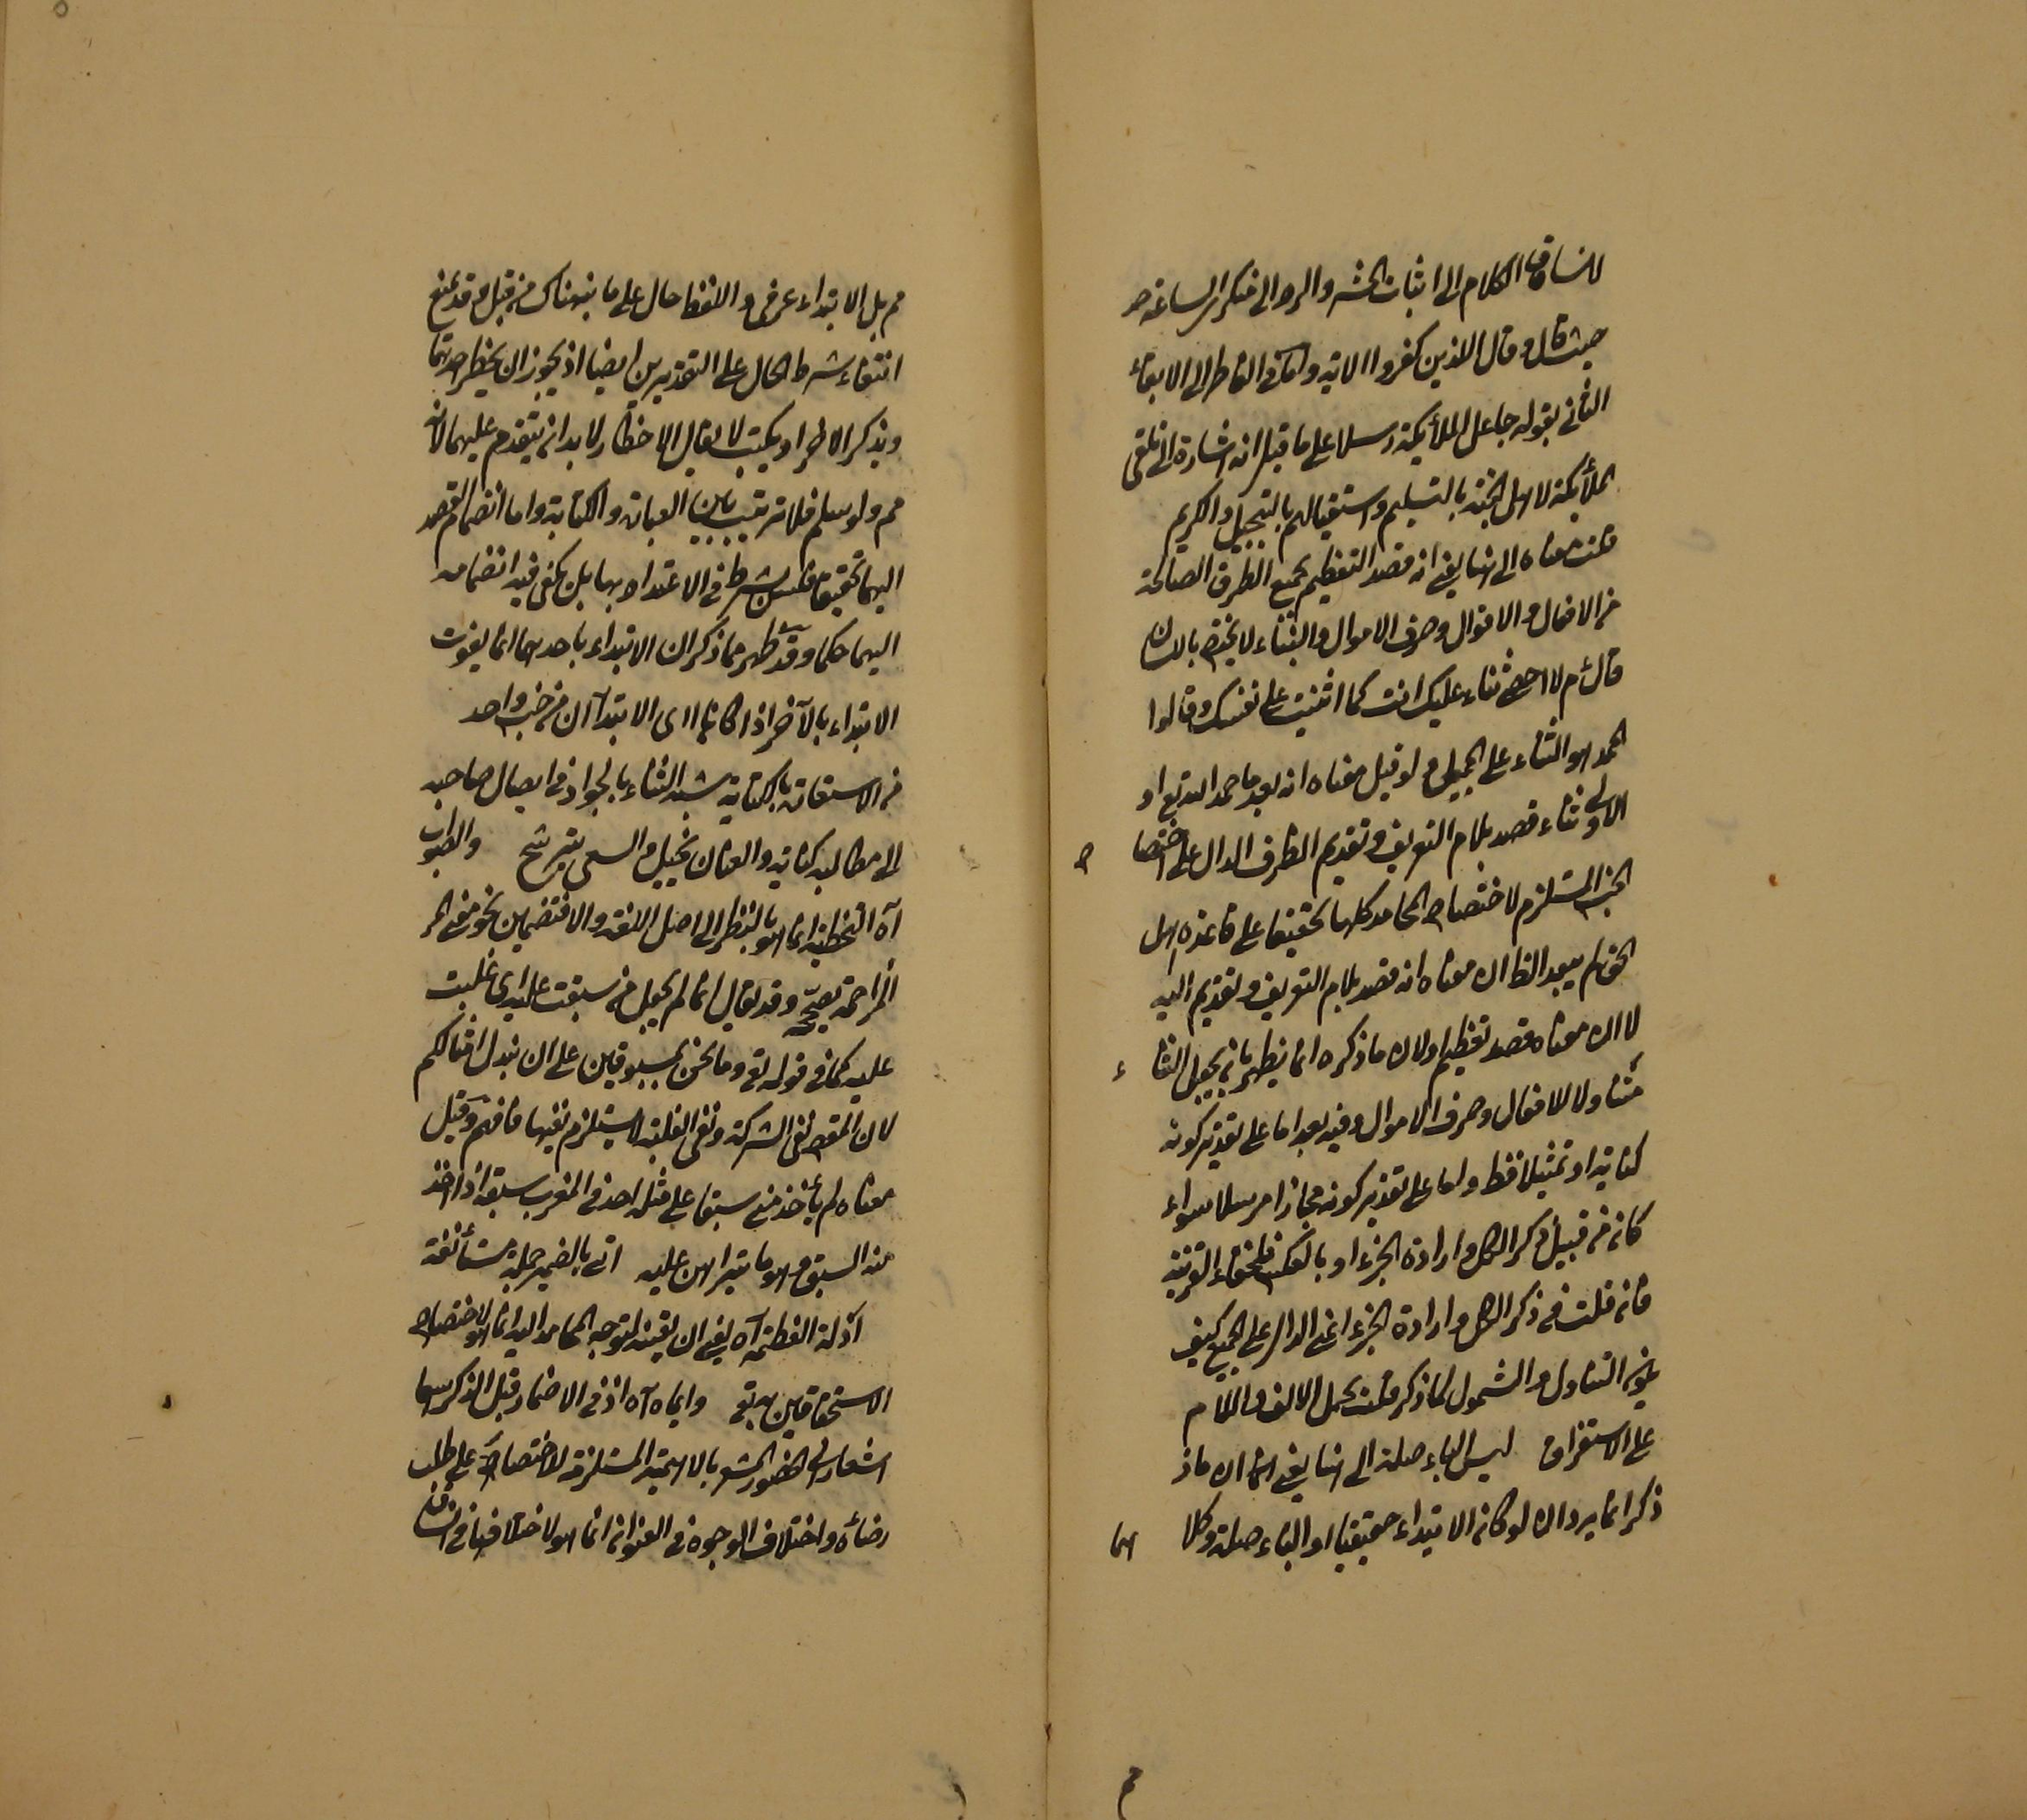 لانساق الكلام الى اثبات الحشر والرد الى منكر الساعة ص
حيث قال وقال الذين كفروا الاية واما فى الفاطر الى الابقاء
الثانى بقوله جاعل الملائكة رسلا على ما قيل انه اشارة الى تلقى
الملائكة لاهل الجنة بالتسليم واستقبالهم بالتبجيل والكريم
قلت معناه الى انها يعنى انه قصد التعظيم بجميع الطرق الصالحة
من الافعال والاقوال وصرف الاموال والثناء لا يختص باللسان
قال م لا احصى ثناء عليك انت كما اثنيت على نفسك وقالوا
الحمد هو الثناء على الجميل ولو قيل معناه انه بعد ما حمد الله تع او
الاولى ثناء قصد بلام التعريف وتقديم الظرف الدال على اختصا ص
الجنس المستلزم لاختصاص المحامد كلها تحقيقا على قاعدة اهل
الحق لم يبعد الظ ان معناه انه قصد بلام التعريف وتقديم اليه
لا ان معناه قصد تعظيم اولا ان ما ذكره انما يظهر بان يجعل الثنا ء
متناولا للافعال وصرف الاموال وفيه بعد اما على تقدير كونه
كناية او تمثيلا فقط واما على تقدير كونه مجازا مرسلا سواء
كان من قبيل ذكر الكل وارادة الجزء او بالعكس فلخفاء القرينة
فان قلت فى ذكر الكل وارادة الجزء اعنى الدال على الجميع كيف
يفيد التناول والشمول لما ذكر قلت بحمل الالف واللام
على الاستغراق ليس الباء صلة الى انها يعنى انما ان ماذ
ذكر انما يرد ان لو كان الابتداء حقيقيا او الباء صلة وكلا هما
مم بل الابتداء عرفى واللفظ حال على ما ينبهناك من قبل وقد يمنع
انتفاء شرط الحال على التقديرين ايضا اذ يجوز ان يخطر احدهما
ويذكر الاخر او يكتب لا يقال الاخطار لا بد ان يتقدم عليهما لانه
مم ولو سلم فلا ترتيب بين العبارة والكتابة واما انضمام القصد
اليهما تحقيقا فليس بشرط فى الاعتداد بهما بل يكفى فيه انضمامه
اليهما حكما وقد ظهر مما ذكر ان الابتداء باحدهما انما يفوت
الابتداء بالآخر اذا كانا اى الابتداآن من جنس واحد
من الاستعارة بالكناية شبه الثناء بالجواد فى ايصال صاحبه
الى مطالبه كناية والعنان تخييل والسعى ترشيح والصواب
آه التخطئة انما هو بالنظر الى اصل اللغة والا فتضمين نحو معنى المر
المزاحمة يصححه وقد يقال انما لم يجعل من سبقت عليه اى غلبت
عليه كما فى قوله تع وما نحن بمسبوقين على ان نبدل امثالكم
لان المقصود نفى الشركة ونفى الغلبة لا يستلزم نفيها فافهم وقيل
معناه لم يأخذ منى سبقا على مثله احد فى المغرب سبقه اذا اخذ
منه السبق وهو ما يتراهن عليه اتى بالضمير جملة مستأنفة
آذلة الفطنة آه يعنى ان يقينه لتوجه المحامد اليه انما هو لاختصاص
الاستحقاقين به تع واياه آه اذ فى الاضمار قبل الذكر سيما
اشعار الى الحضور المشعر بالاهمية المستلزمة لاختصاصه على طلب
رضائه واختلاف الوجوه فى العنوان انما هو لاختلافها فى الشان